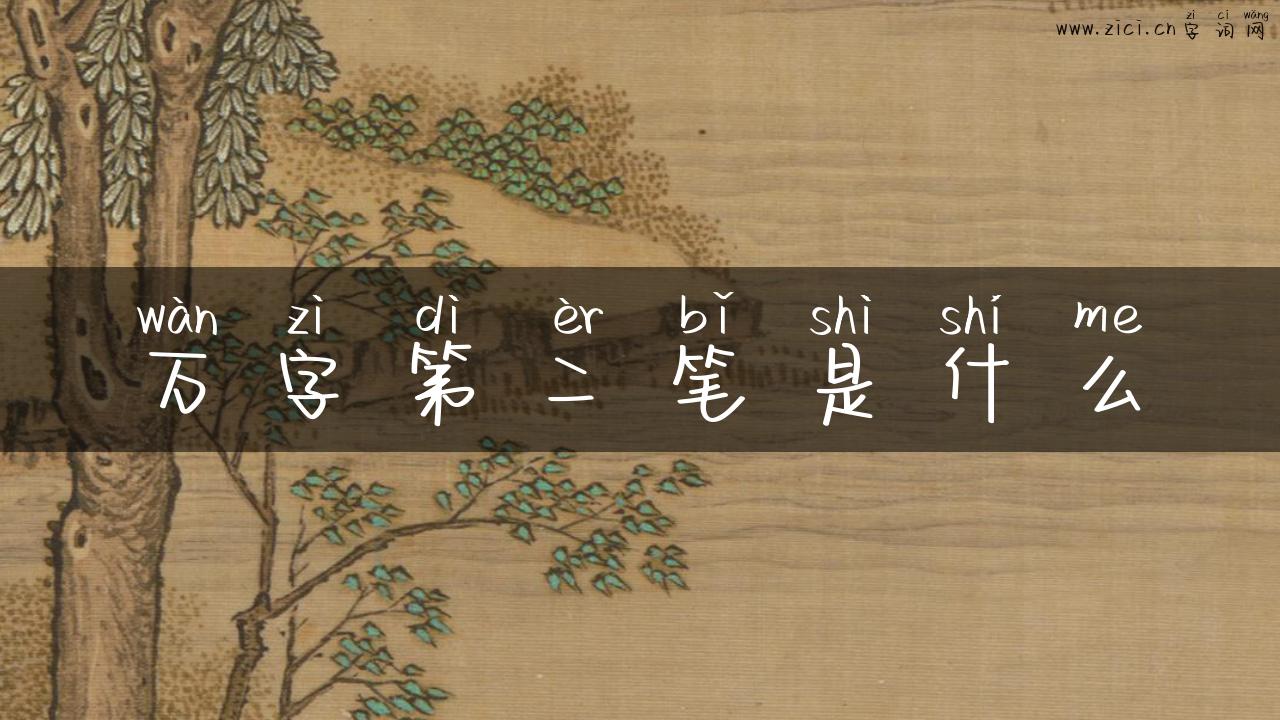 zì cí wǎng
www.zici.cn 字词网
wàn zì dì èr bǐ shì shí me
万字第二笔是什么